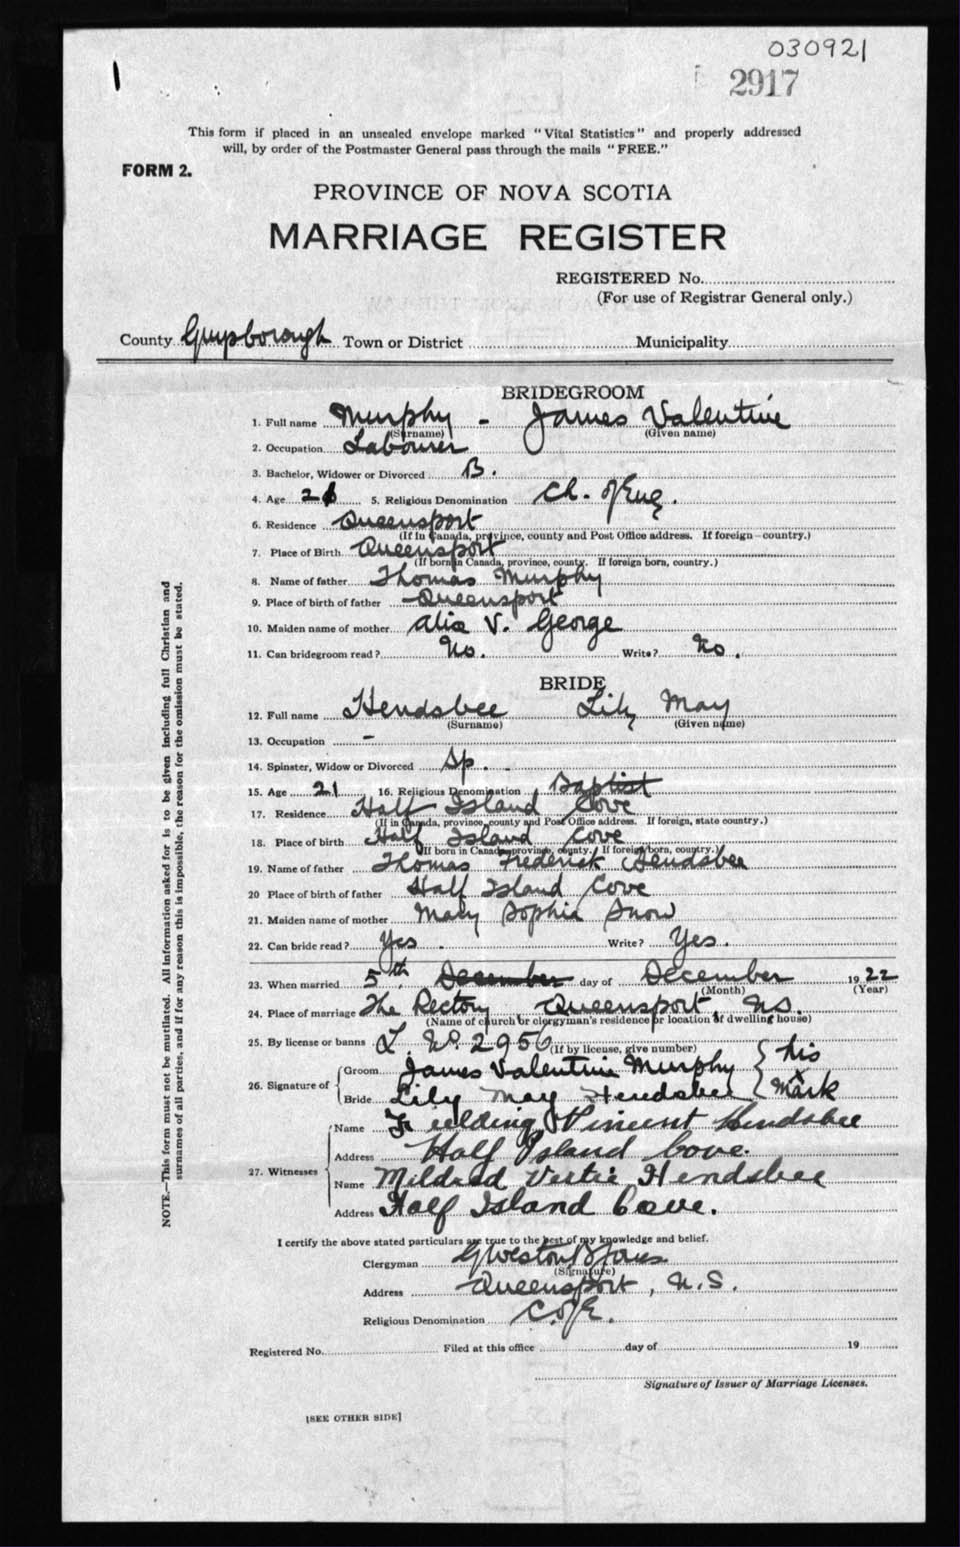 030921
2917
This form if placed in an unsealed envelope marked "Vital Statistics" and properly addressed
will, by order of the Postmaster General pass through the mails "FREE."
FORM 2.
PROVINCE OF NOVA SCOTIA
MARRIAGE REGISTER
REGISTERED No.
(For use of Registrar General only.)
County Guysborough Town or District Municipality
BRIDEGROOM
1. Full name Murphy - James Valentine
(Surname) (Given name)
2. Occupation Labourer
3. Bachelor, Widower or Divorced B.
4. Age 5. Religious Denomination Ch. of Eng.
6. Residence Queensport
(If in Canada, province, county and Post Office address. If foreign—country.)
7. Place of Birth Queensport
(If born in Canada, province, county. If foreign born, country.)
8. Name of father Thomas Murphy
9. Place of birth of father Queensport
10. Maiden name of mother V. George
11. Can bridegroom read? No. Write? No.
BRIDE
12. Full name Hendsbee Lily May
(Surname) (Given name)
13. Occupation -
14. Spinster, Widow or Divorced Sp.
15. Age 21 16. Religious Denomination Baptist
17. Residence Half Island Cove
(If in Canada, province, county and Post Office address. If foreign, state country.)
18. Place of birth Half Island Cove
(If born in Canada, province, county. If foreign born, country.)
19. Name of father Thomas Frederick Hendsbee
20 Place of birth of father Half Island Cove
21. Maiden name of mother Mary Sophia Snow
22. Can bride read? Yes. Write? Yes.
23. When married 5th December day of December 1922
(Month) (Year)
24. Place of marriage The Rectory Queensport, N.S.
(Name of church or clergyman's residence or location of dwelling house)
25. By license or banns L. No. 2956
(If by license, give number)
26. Signature of Groom James Valentine Murphy his
Bride Lily May Hendsbee x Mark
27. Witnesses Name Fielding Vincent Hendsbee
Address Half Island Cove.
Name Mildred Vertie Hendsbee
Address Half Island Cove.
I certify the above stated particulars are true to the best of my knowledge and belief.
Clergyman
(Signature)
Address Queensport, N.S.
Religious Denomination C. of E.
Registered No. Filed at this office day of 19
Signature of Issuer of Marriage Licenses.
[SEE OTHER SIDE]
NOTE.—This form must not be mutilated. All information asked for is to be given including full Christian and
surnames of all parties, and if for any reason this is impossible, the reason for the omission must be stated.